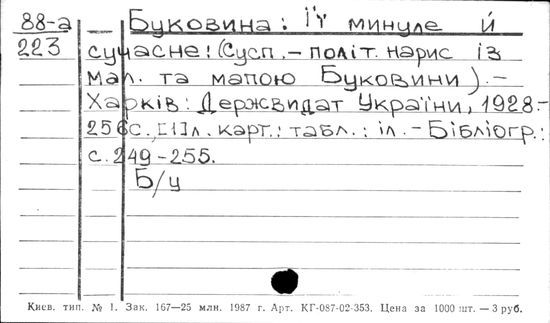 88-а
223
— Буковина: Її минуле й
сучасне! (Сусп.-політ. нарис із
мал. та мапою Буковини).-
Харків: Держвидат України, 1928-
256с., [1]л. карт.: табл.: іл.-Бібліогр.:
с. 249-255.
Б/ц
Киев. тип. № 1. Зак. 167—25 млн. 1987 г. Арт. КГ-087-02-353. Цена за 1000 шт. — 3 руб.